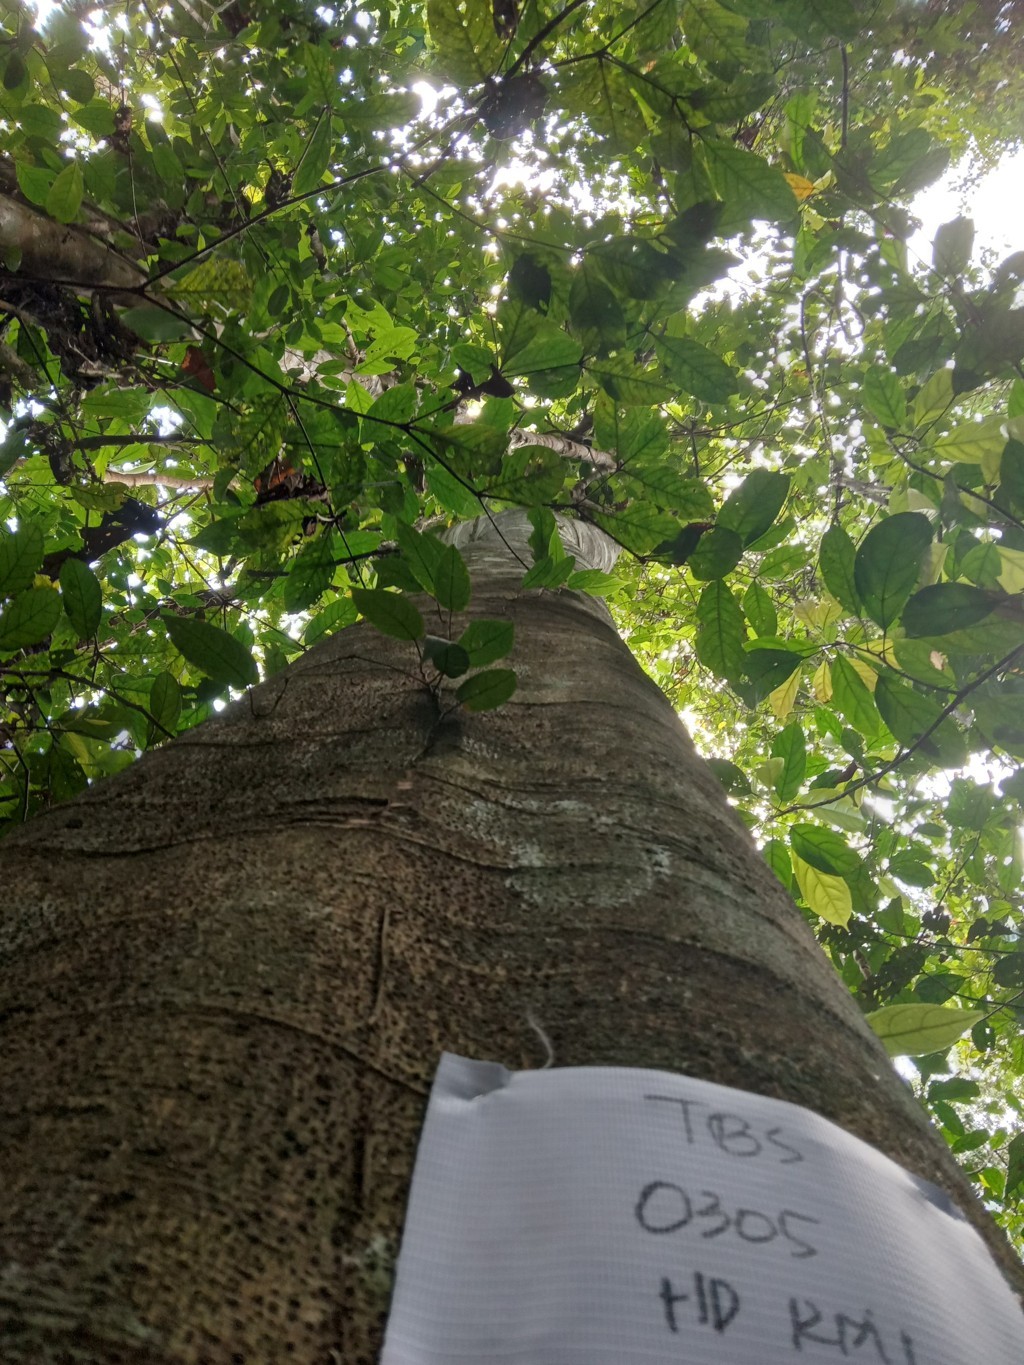 TBS
0305
HD KM1